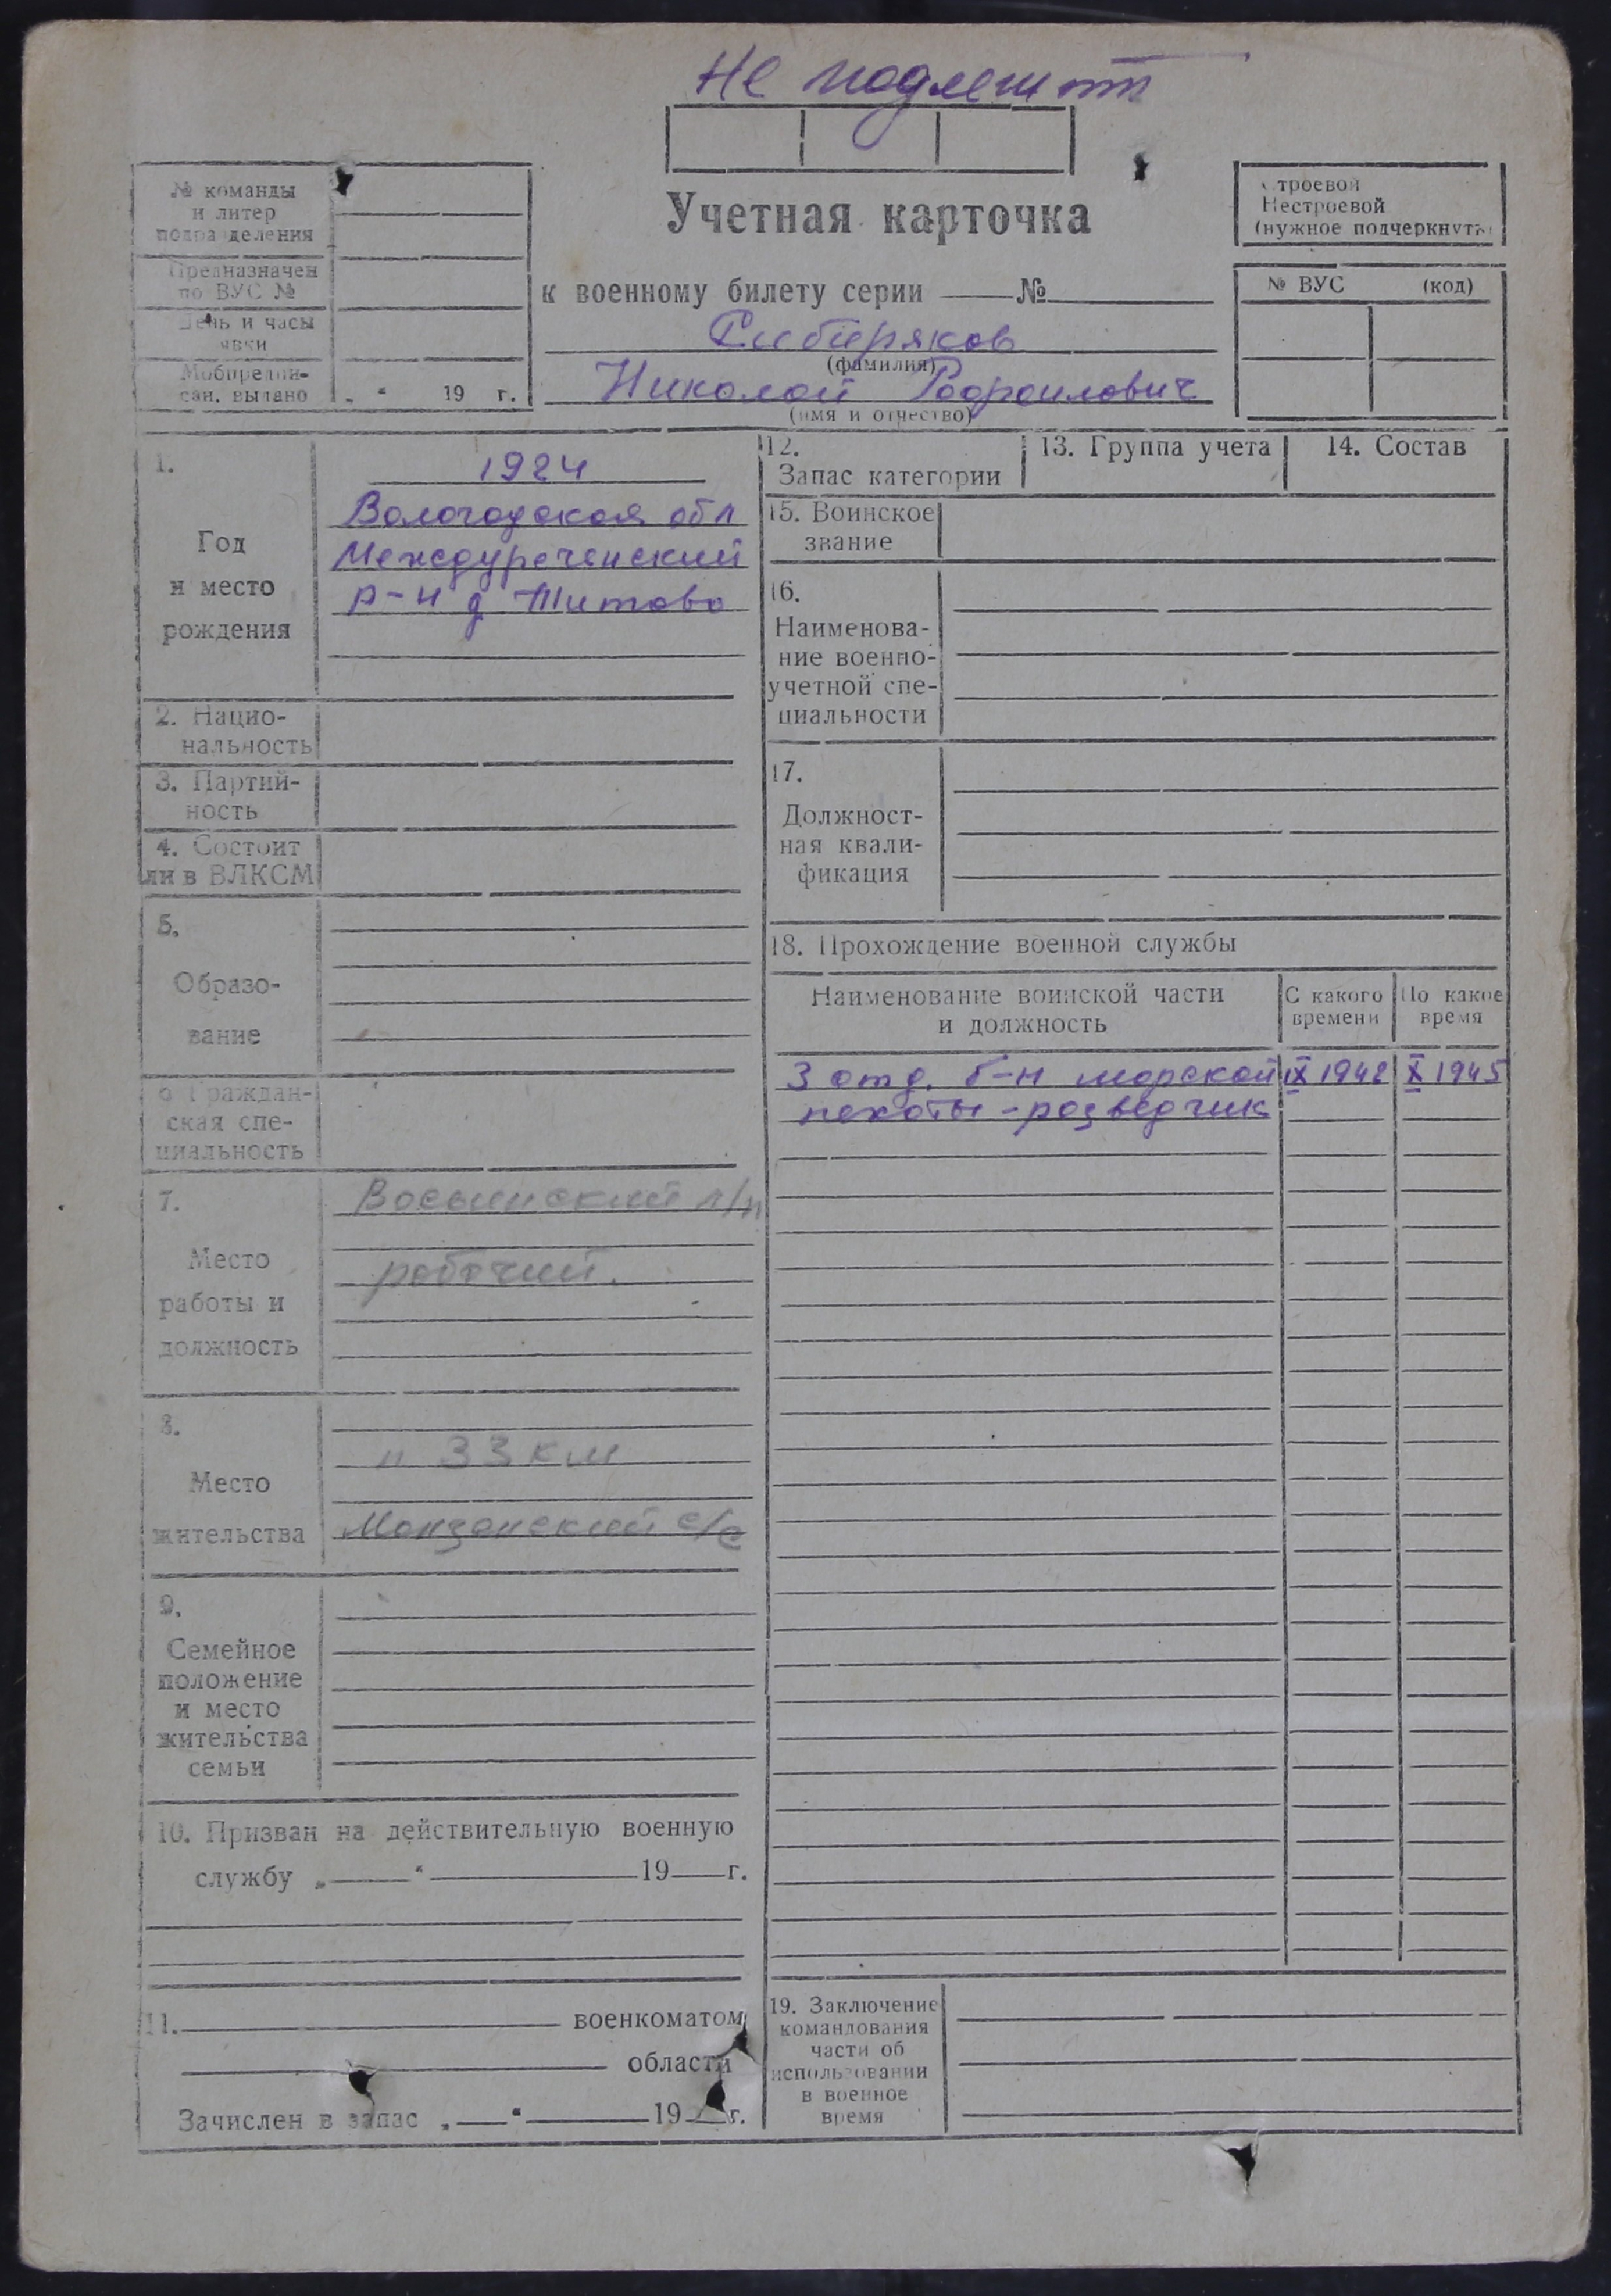 Не подлежит
№ команды
и литер
подразделения
Предназначен
по ВУС №
День и часы
явки
Мобпредпи-
сан. выдано „ “ 19 г.
Учетная карточка
к военному билету серии № 
Сибиряков
(фамилия)
Николай
(имя и отчество)
Строевой
Нестроевой
(нужное подчеркнуть)
№ ВУС (код)
1.
Год
и место
рождения
1924
Вологодская обл
Междуреченский
р-н д Титово
2. Нацио-
нальность
3. Партий-
ность
4. Состоит
ли в ВЛКСМ
5.
Образо-
вание
6 Граждан-
ская спе-
циальность
7.
Место
работы и
должность
л/п
рабочий.
8.
Место
жительства
п 33 км
Монзенский с/с
9.
Семейное
положение
и место
жительства
семьи
10. Призван на действительную военную
службу „ “ 19 г.
11. военкоматом
области
Зачислен в запас „ “ 19 г.
12.
Запас категории
13. Группа учета
14. Состав
15. Воинское
звание
16.
Наименова-
ние военно-
учетной спе-
циальности
17.
Должност-
ная квали-
фикация
18. Прохождение военной службы
Наименование воинской части
и должность
С какого
времени
По какое
время
3 отд. б-н морской IX 1942 X 1945
пехоты - разведчик
19. Заключение
командования
части об
использовании
в военное
время